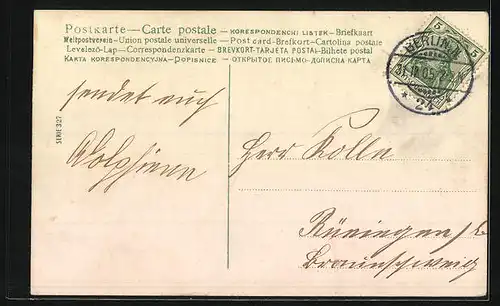 Postkarte — Carte postale — KORESPONDENČNÍ LISTEK — Briefkaart
Weltpostverein — Union postale universelle — Post card - Brefkort - Cartolina postale
Levelező-Lap — Correspondenzkarte — BREVKORT - TARJETA POSTAL — Bilhete postal
KARTA KORESPONDENCYJNA — DOPISNICE — ОТКРЫТОЕ ПИСЬМО - ДОПИСНА КАРТА
5 5
BERLIN
05
* 24 *
SERIE 327
sendet euch
Herr Kolle
Rüningen /
Braunschweig